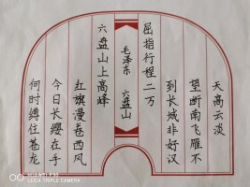 天高云淡
望断南飞雁不
到长城非好汉
屈指行程二万
毛泽东 六盘山
六盘山上高峰
红旗漫卷西风
今日长缨在手
何时缚住苍龙